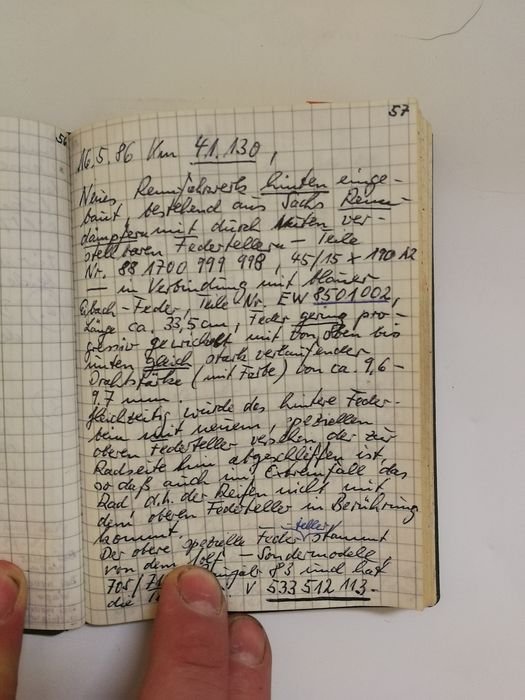 56
57
16.5.86 Km 41.130,
Neues Rennfahrwerk hinten einge-
baut, bestehend aus Sachs Renn-
dämpfern mit durch Nuten ver-
stellbaren Federtellern – Teile
Nr. 88 1700 999 998, 45/15 x 190 A2
– in Verbindung mit blauer
Eibach-Feder, Teile Nr. EW 8501002,
Länge ca. 33,5 cm, Feder gering pro-
gressiv gewickelt mit von oben bis
unten gleich stark verlaufender
Drahtstärke (mit Farbe) von ca. 9,6 –
9,7 mm.
Gleichzeitig wurde das hintere Feder-
bein mit neuem, speziellen
oberen Federteller versehen, der zur
Radseite hin abgeschliffen ist,
so daß auch im Extremfall das
Rad d.h. der Reifen nicht mit
dem oberen Federteller in Berührung
kommt.
Der obere spezielle Federteller stammt
von dem Golf – Sondermodell,
83 und hat
die V 533 512 113.